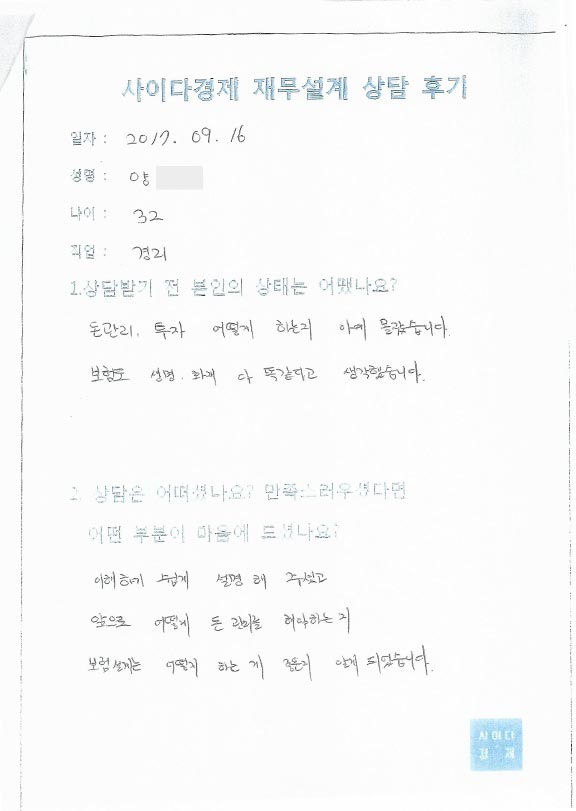 사이다경제 재무설계 상담 후기
일자 : 2017. 09. 16
성명 : 양
나이 : 32
직업 : 경리
1.상담받기 전 본인의 상태는 어땠나요?
돈관리, 투자 어떻게 하는지 아예 몰랐습니다.
보험도 생명. 화재 다 똑같다고 생각했습니다.
2. 상담은 어떠셨나요? 만족스러우셨다면
어떤 부분이 마음에 드셨나요?
이해하기 쉽게 설명 해 주셨고
앞으로 어떻게 돈 관리를 해야하는 지
보험설계는 어떻게 하는 게 좋은지 알게 되었습니다.
사이다
경제